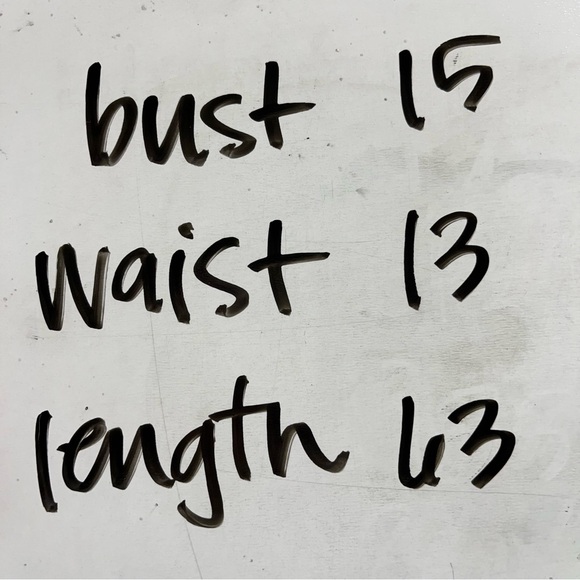 bust 15
waist 13
length 63